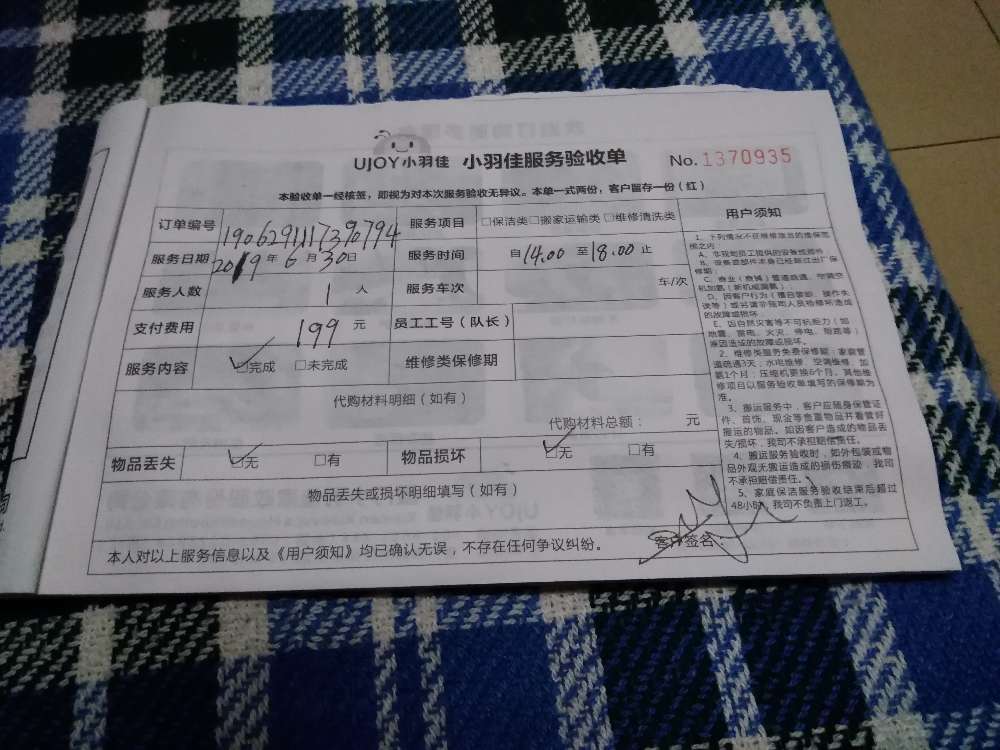 UJOY小羽佳 小羽佳服务验收单 No.1370935
本验收单一经核签，即视为对本次服务验收无异议。本单一式两份，客户留存一份（红）
订单编号 1906291117390794 服务项目 □保洁类□搬家运输类□维修清洗类
服务日期 2019年6月30日 服务时间 自14.00至18.00止
服务人数 1人 服务车次 车/次
支付费用 199元 员工工号（队长）
服务内容 ☑完成 □未完成 维修类保修期
代购材料明细（如有）
代购材料总额： 元
物品丢失 ☑无 □有 物品损坏 ☑无 □有
物品丢失或损坏明细填写（如有）
本人对以上服务信息以及《用户须知》均已确认无误，不存在任何争议纠纷。 客户签名：
用户须知
1、下列情况不在维修类保的维保范
围之内
A、非我司员工提供的安装或部件
B、设备或部件本身已经超过出厂保
修期；
C、商业（商铺）管道疏通、空调空
机加氨（新机或漏氟）；
D、因客户行为（擅自装卸、操作失
误等）或另请非我司人员检修所造成
的故障或损坏；
E、因自然灾害等不可抗能力（如
地震、雷电、火灾、停电、短路等）
原因造成的故障或损坏。
2、维修类服务免费保修期：家庭管
道疏通3天；水电维修、空调维修、加
氨1个月；压缩机更换6个月，其他维
修项目以服务验收单填写的保修期为
准。
3、搬运服务中，客户应随身保管证
件、首饰、现金等贵重物品并看管好
搬运的物品。如因客户造成的物品丢
失/损坏，我司不承担赔偿责任。
4、搬运服务验收时，如外包装或物
品外观无搬运造成的损伤痕迹，我司
不承担赔偿责任。
5、家庭保洁服务验收结束后超过
48小时，我司不负责上门返工。